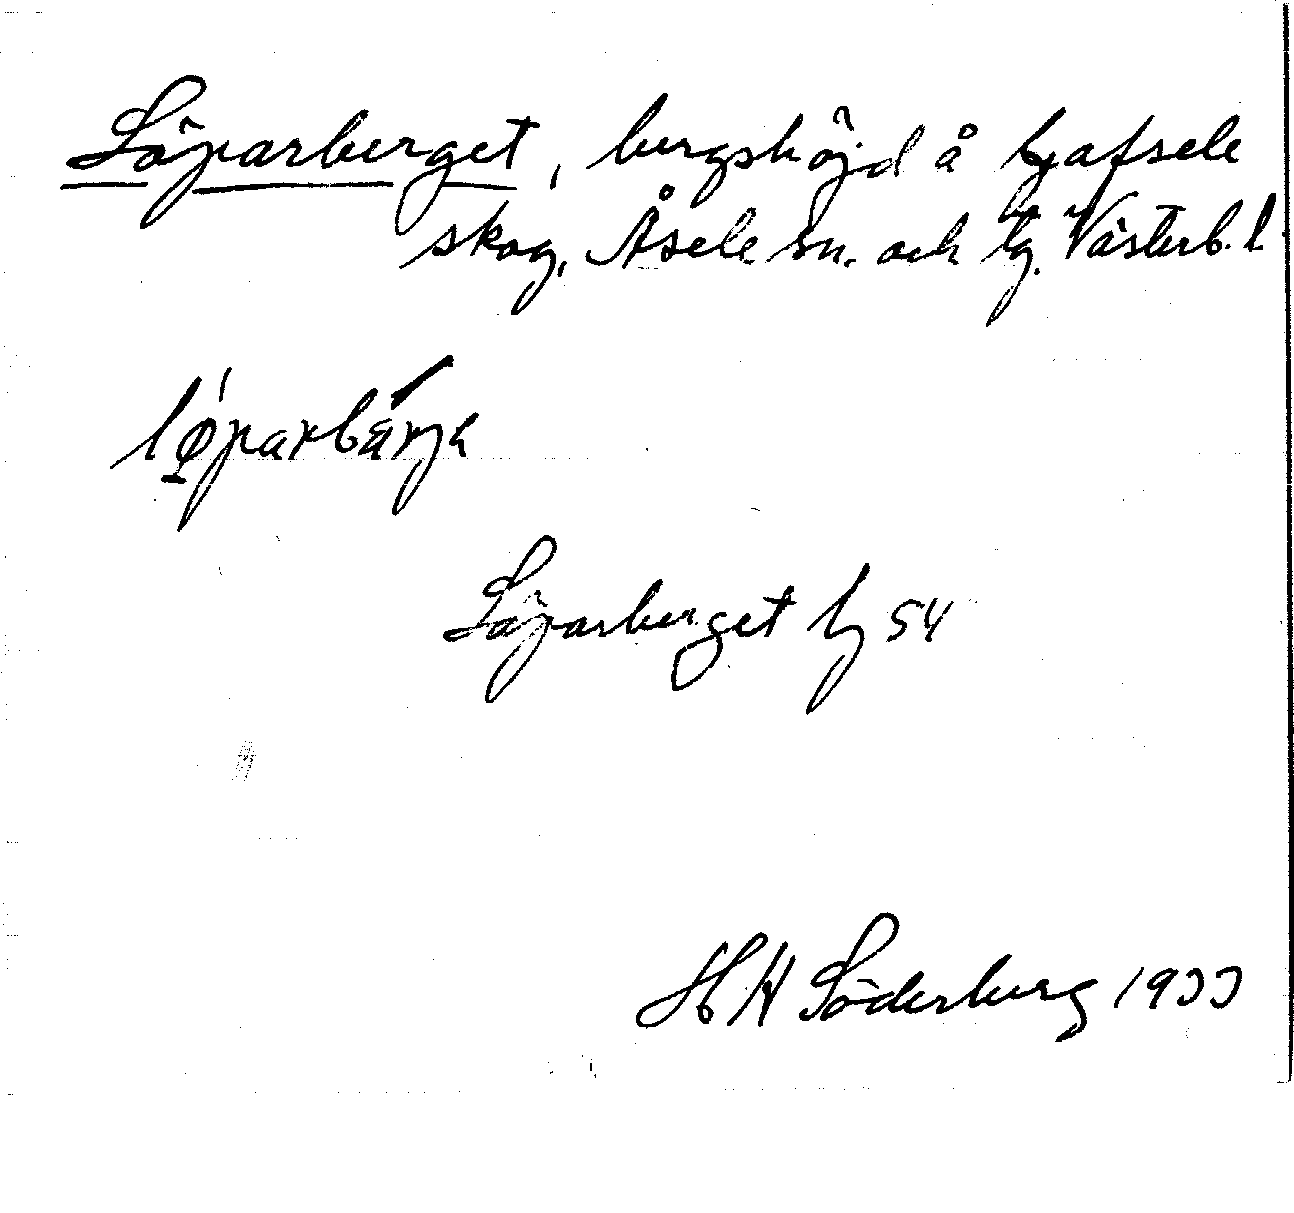 Löparberget, bergshöjd å Hafsele
skog, Åsele sn. och tg. Västerb. l.
løparbärjɛ
Löparberget hj 54
H H Söderberg 1933